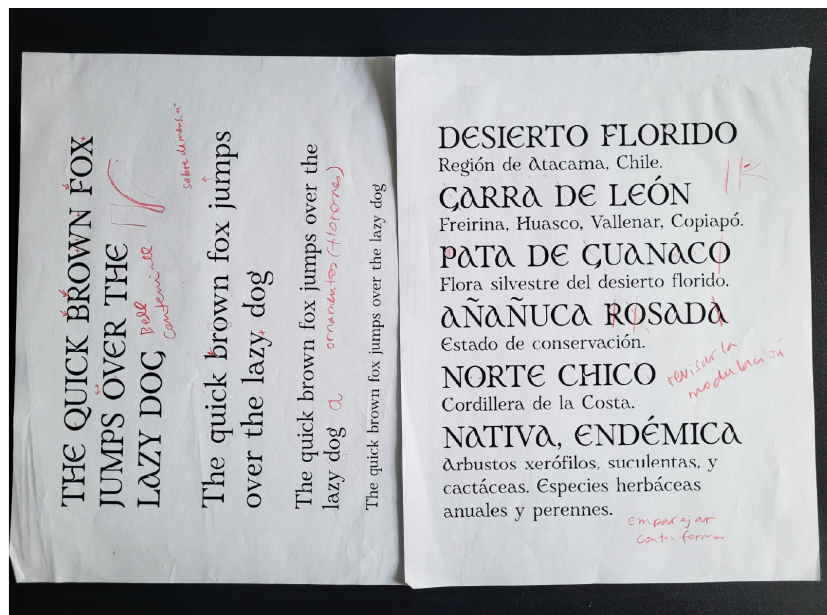 THE QUICK BROWN FOX
JUMPS OVER THE
LAZY DOG
Bell
centenniall
sobre demanda
The quick brown fox jumps
over the lazy dog
The quick brown fox jumps over the
lazy dog a ornamentos (florones)
The quick brown fox jumps over the lazy dog
DESIERTO FLORIDO
Región de Atacama, Chile.
GARRA DE LEÓN
Freirina, Huasco, Vallenar, Copiapó.
PATA DE GUANACO
Flora silvestre del desierto florido.
AÑAÑUCA ROSADA
Estado de conservación.
NORTE CHICO
revisar la
modulación
Cordillera de la Costa.
NATIVA, ENDÉMICA
Arbustos xerófilos, suculentas, y
cactáceas. Especies herbáceas
anuales y perennes.
emparejar
contriforma